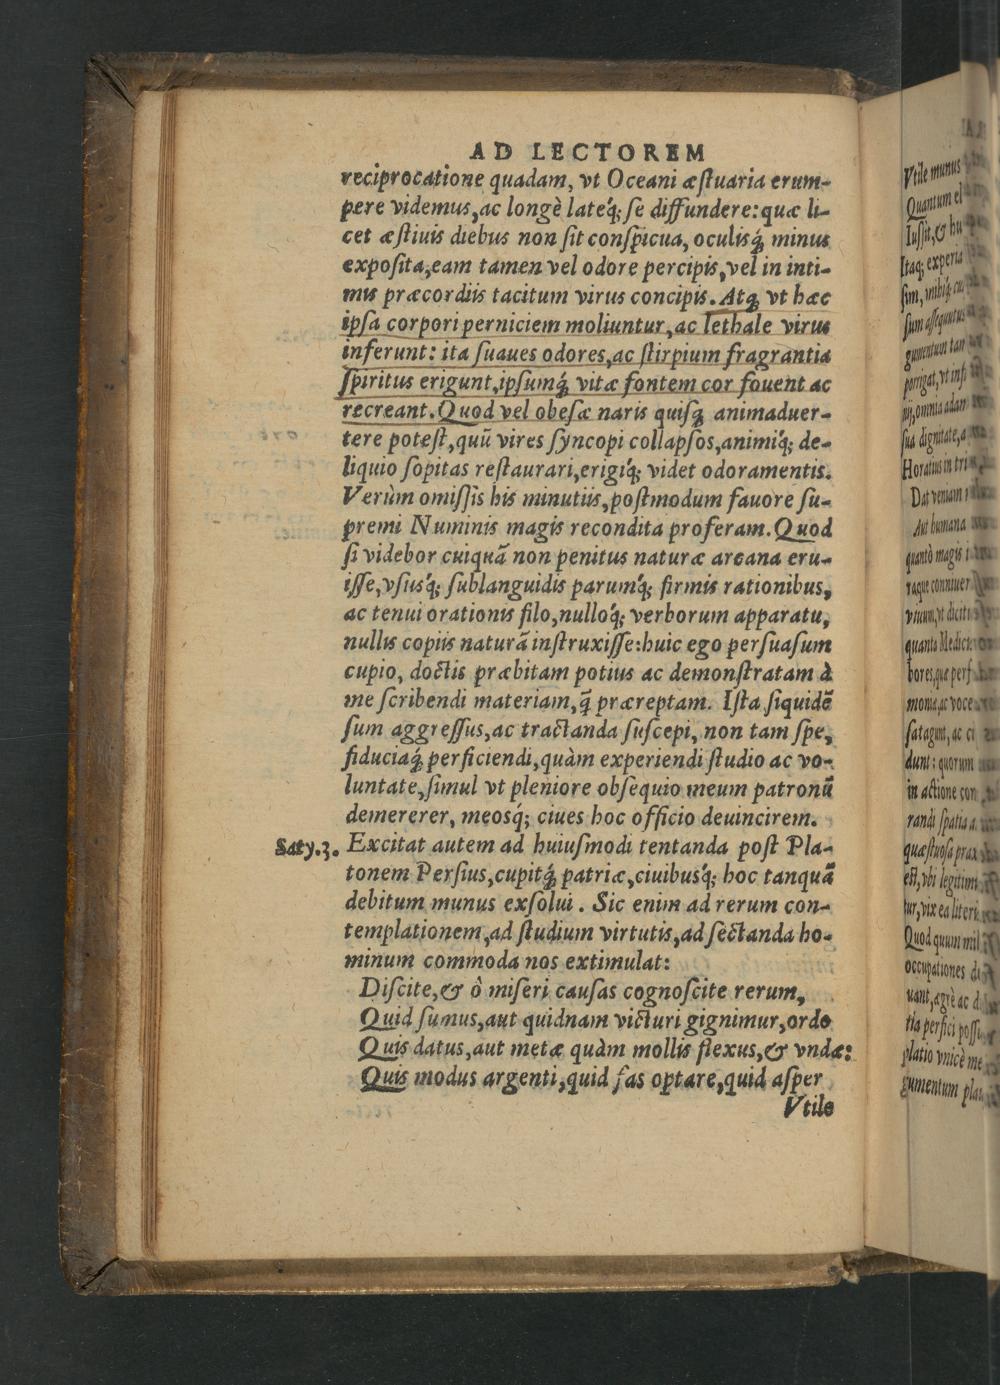 AD LECTOREM
reciprocatione quadam, vt Oceani æſtuaria erum-
pere videmus, ac longè lateq́; ſe diffundere: quæ li-
cet æſtiuis diebus non ſit conſpicua, oculisq́; minus
expoſita, eam tamen vel odore percipis, vel in inti-
mis præcordiis tacitum virus concipis. Atq; vt hæc
ipſa corpori perniciem moliuntur, ac lethale virus
inferunt: ita ſuaues odores, ac ſtirpium fragrantia
ſpiritus erigunt, ipſumq́; vitæ fontem cor fouent ac
recreant. Quod vel obeſæ naris quiſq; animaduer-
tere poteſt, quū vires ſyncopi collapſos, animiq́; de-
liquio ſopitas reſtaurari, erigiq́; videt odoramentis.
Verùm omiſſis his minutiis, poſtmodum fauore ſu-
premi Numinis magis recondita proferam. Quod
ſi videbor cuiquã non penitus naturæ arcana eru-
iſſe, vſusq́; ſublanguidis parumq́; firmis rationibus,
ac tenui orationis filo, nulloq́; verborum apparatu,
nullis copiis naturã inſtruxiſſe: huic ego perſuaſum
cupio, doctis præbitam potius ac demonſtratam à
me ſcribendi materiam, q̃ præreptam. Iſta ſiquidē
ſum aggreſſus, ac tractanda ſuſcepi, non tam ſpe,
fiduciaq́; perficiendi, quàm experiendi ſtudio ac vo-
luntate, ſimul vt pleniore obſequio meum patronū
demererer, meosq́; ciues hoc officio deuincirem.
Saty.3. Excitat autem ad huiuſmodi tentanda poſt Pla-
tonem Perſius, cupitq́; patriæ, ciuibusq́; hoc tanquã
debitum munus exſolui. Sic enim ad rerum con-
templationem, ad ſtudium virtutis, ad ſectanda ho-
minum commoda nos extimulat:
Diſcite, & ô miſeri cauſas cognoſcite rerum,
Quid ſumus, aut quidnam victuri gignimur, ordo
Quis datus, aut metæ quàm mollis flexus, & vndæ:
Quis modus argenti, quid fas optare, quid aſper
Vtile
Vtile munus
Quantum el
Iuſſit, & hu
Itaq; experia
ſum aſſequutus
gumentum tan
porrigat, vt inſi
omnia adam
ſua dignitate, a
Horatius in tri
Dat veniam
Aut humana
quantò magis i
raque conniuer
vitium, vt dicit
quanta Medici
bores, quæ perf
monia, ac voce
ſatagunt, ac ci
dunt: quorum
in actione con
randi ſpatia a
quæſtuoſa prax
eſt, vbi legitimi
tur, vix ea liter
Quod quum mil
occupationes di
uant, ægrè ac d
tia perfici poſſu
platio vnicè me
gumentum plat